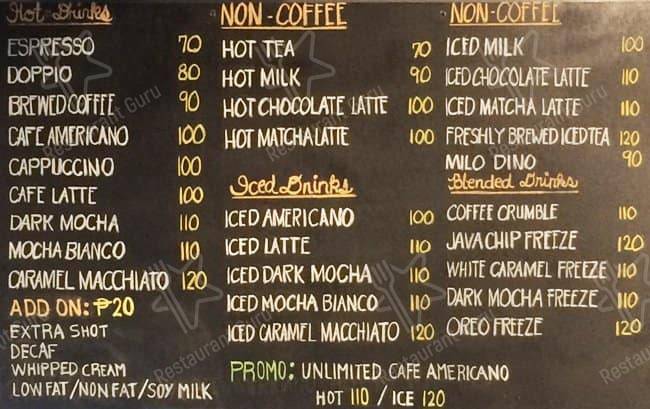 Hot-Drinks
ESPRESSO 70
DOPPIO 80
BREWED COFFEE 90
CAFE AMERICANO 100
CAPPUCCINO 100
CAFE LATTE 100
DARK MOCHA 110
MOCHA BIANCO 110
CARAMEL MACCHIATO 120
ADD ON: ₱20
EXTRA SHOT
DECAF
WHIPPED CREAM
LOW FAT/NON FAT/SOY MILK
NON-COFFEE
HOT TEA 70
HOT MILK 90
HOT CHOCOLATE LATTE 100
HOT MATCHA LATTE 100
Iced Drinks
ICED AMERICANO 100
ICED LATTE 110
ICED DARK MOCHA 110
ICED MOCHA BIANCO 110
ICED CARAMEL MACCHIATO 120
NON-COFFEE
ICED MILK 100
ICED CHOCOLATE LATTE 110
ICED MATCHA LATTE 110
FRESHLY BREWED ICED TEA 120
MILO DINO 90
Blended Drinks
COFFEE CRUMBLE 110
JAVA CHIP FREEZE 120
WHITE CARAMEL FREEZE 110
DARK MOCHA FREEZE 110
OREO FREEZE 120
PROMO: UNLIMITED CAFE AMERICANO
HOT 110 / ICE 120
Restaurant Guru